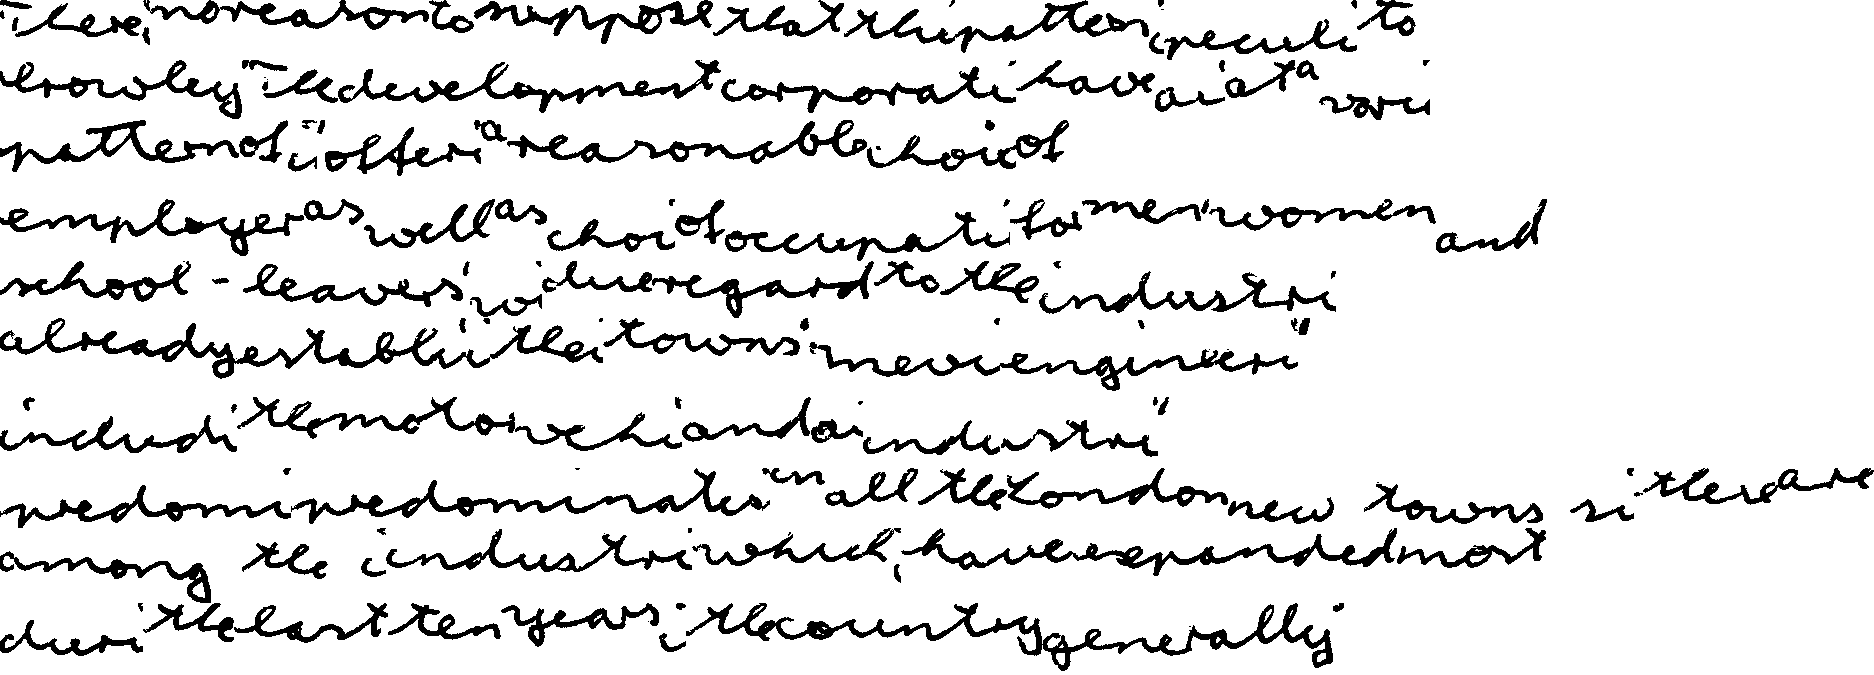 There no reason to suppose that thi pattern i peculi to
Crawley The development corporati have ai at a vari
pattern of i offeri a reasonable choi of
employer as well as choi of occupati for men women and
school - leavers wi due regard to the industri
already establi i the i towns engineeri
includi the motor vehi and ai industri
predomi predominates in all the London new towns si these are
among the industri which have expanded most
duri the last ten years i the country generally